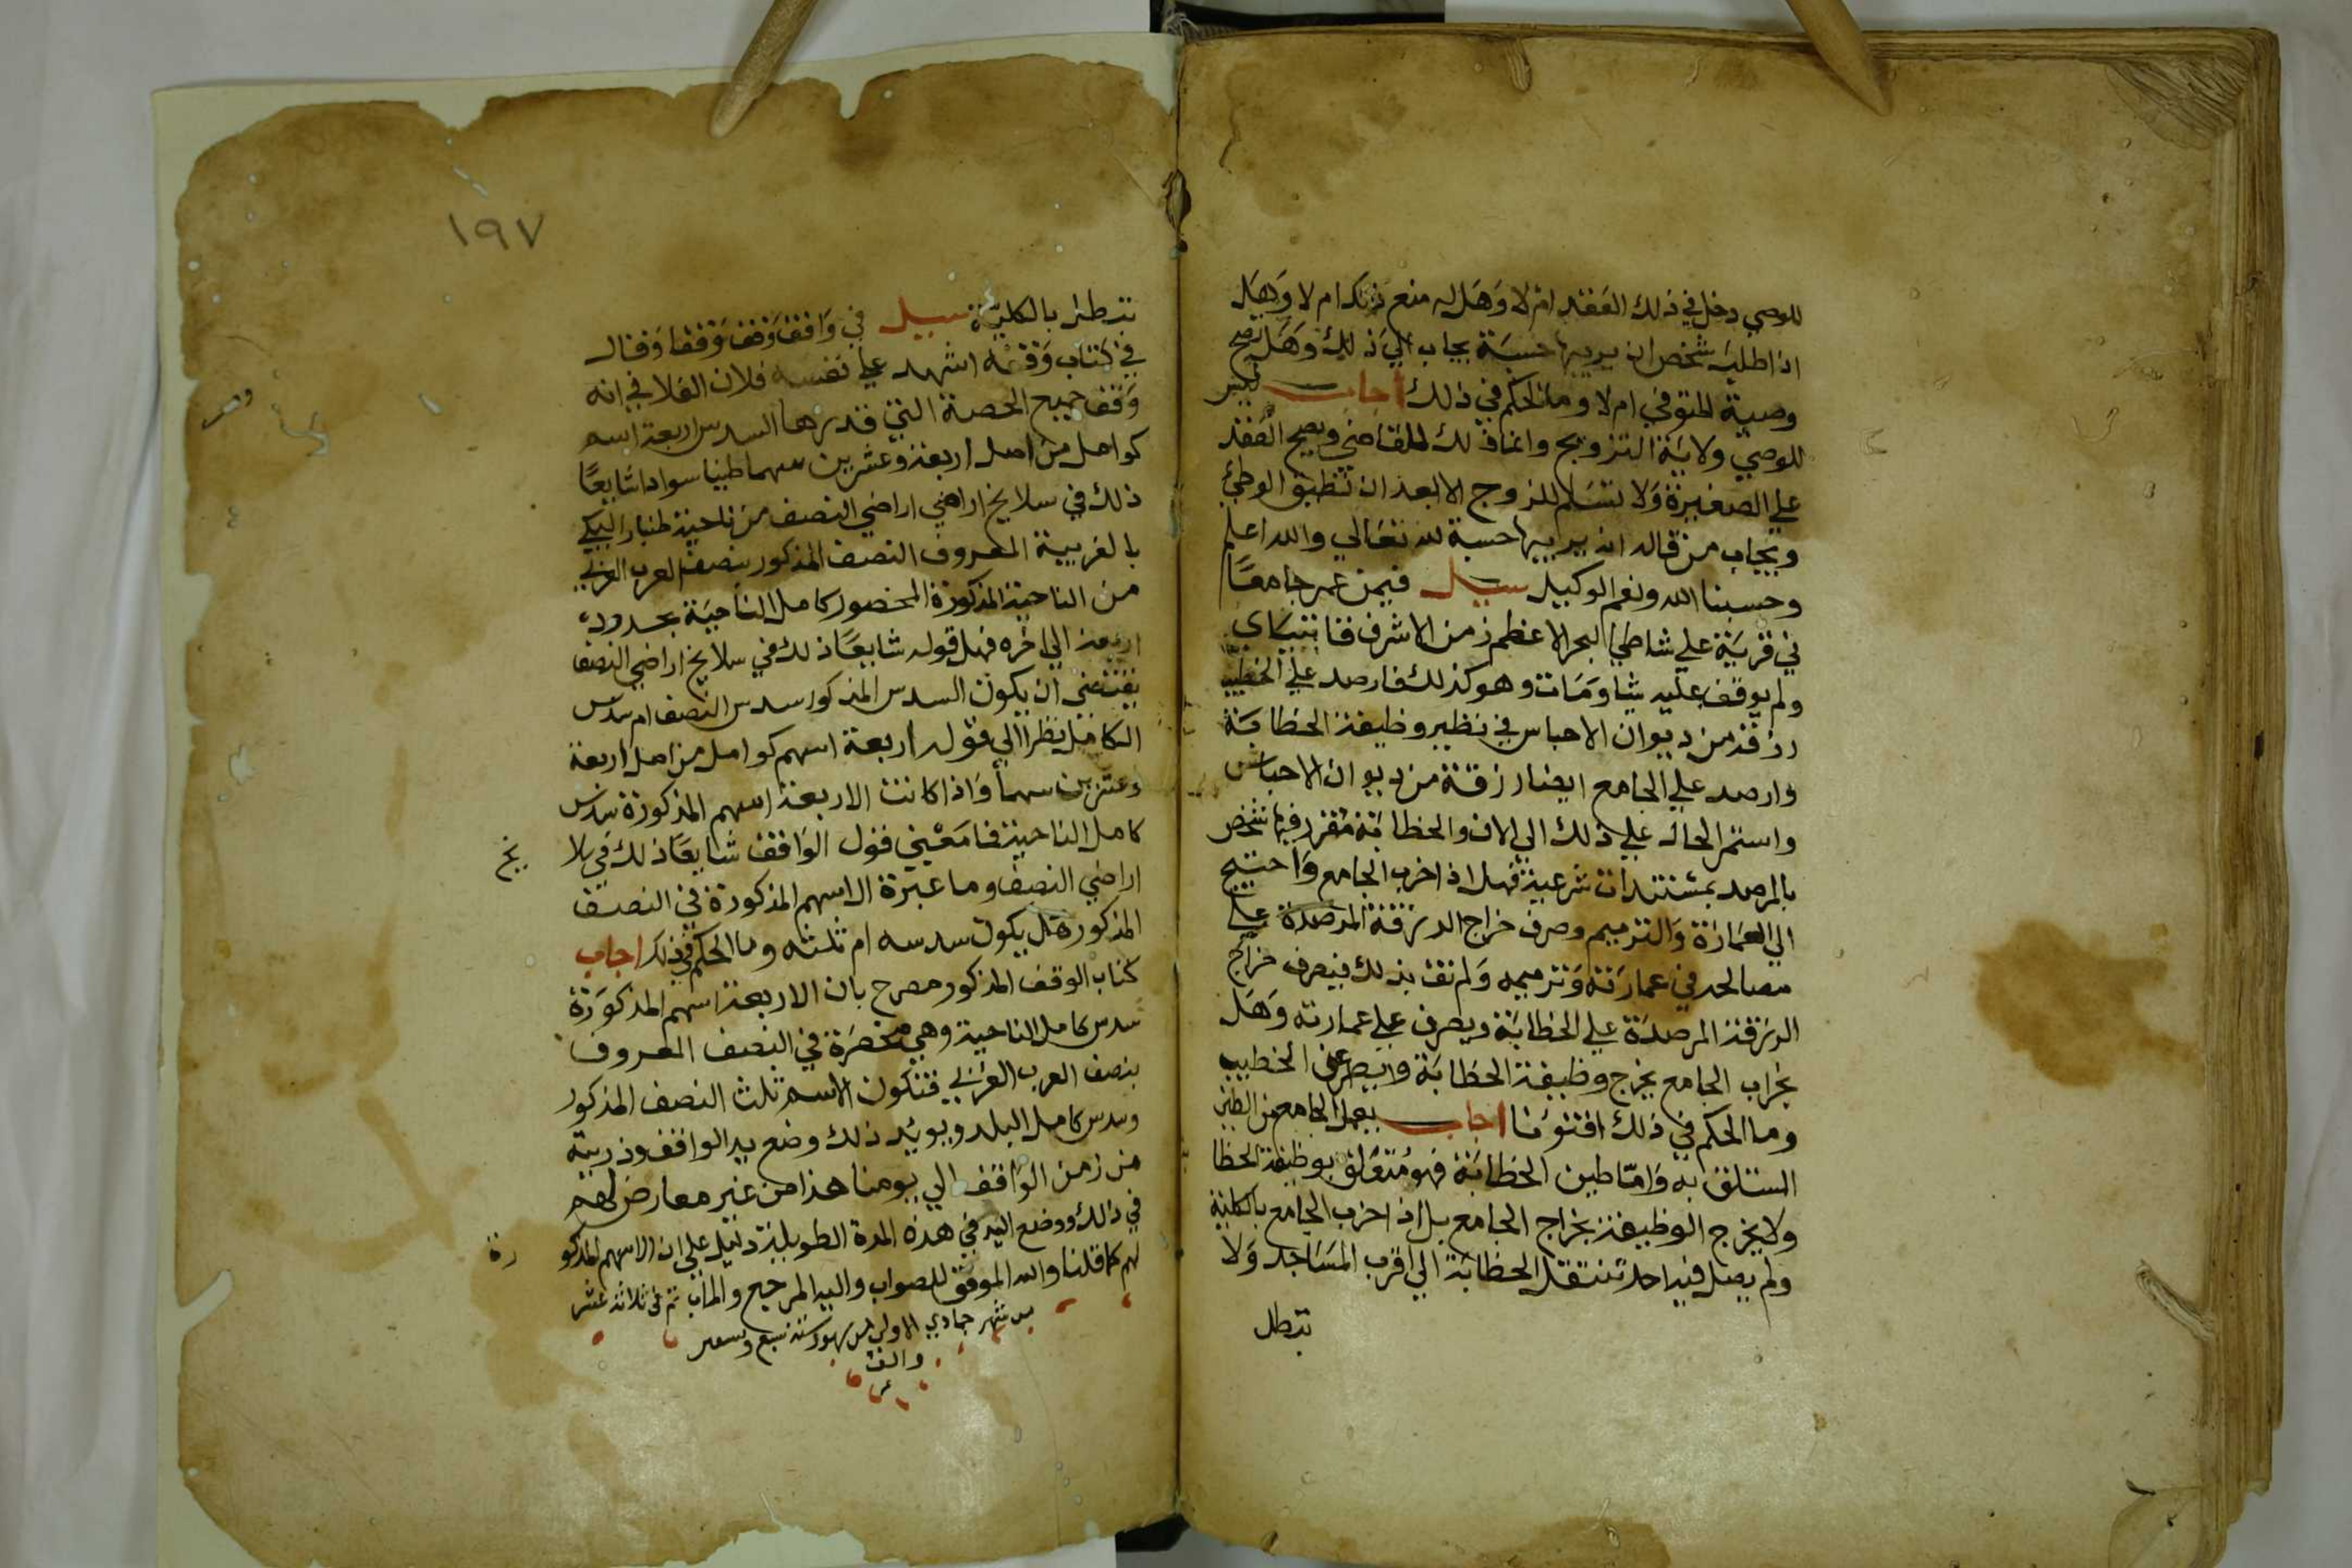 للوصي دخل في ذلك العقد ام لا وهل له منع ذلك ام لا وهل
اذا طلب شخص ان يربيها حسبة يجاب الي ذلك وهل تصح
وصية المتوفي ام لا وما الحكم في ذلك اجاب ليس
للوصي ولاية التزويج وانما ذلك للقاضي ويصح العقد
علي الصغيرة ولا تسلم للزوج الا بعد ان تطيق الوطئ
ويجاب من قال انه يربيها حسبة لله تعالي والله اعلم
وحسبنا الله ونعم الوكيل سيل فيمن عمر جامعا
في قرية علي شاطئ البحر الاعظم زمن الاشرف قايتباي
ولم يوقف عليه شيا ومات وهو كذلك فارصد علي الخطيب
رزقة من ديوان الاحباس في نظير وظيفة الخطابة
وارصد علي الجامع ايضا رزقة من ديوان الاحباس
واستمر الحال علي ذلك الي الان والخطابة مقرر فيها شخص
بالمرصد بمستندات شرعية فهل اذا خرب الجامع واحتيج
الي العمارة والترميم وصرف خراج الرزقة المرصدة علي
مصالحه في عمارته وترميمه ولم تف بذلك فيصرف خراج
الرزقة المرصدة علي الخطابة ويصرف علي عمارته وهل
بخراب الجامع يخرج وظيفة الخطابة عن الخطيب
وما الحكم في ذلك افتونا اجاب يعمل الجامع من الطين
به واما طين الخطابة فهو متعلق بوظيفة الخطا
ولا يخرج الوظيفة بخراج الجامع بل اذا خرب الجامع بالكلية
ولم يصل فيه احد تنتقل الخطابة الي اقرب المساجد ولا
تبطل
١٩٧
تبطل بالكلية سيل في واقف وقف وقفا وقال
في كتاب وقفه اشهد علي نفسه فلان الفلاني انه
وقف جميع الحصة التي قدرها السدس اربعة اسهم
كوامل من اصل اربعة وعشرين سهما طينا سوادا شايعا
ذلك في سلايخ اراضي اراضي النصف من ناحية
بالغربية المعروف النصف المذكور بنصف العرب الغربي
من الناحية المذكورة المحصور كامل الناحية بحدود
اربعة الي اخره فهل قوله شايعا ذلك في سلايخ اراضي النصف
يقتضي ان يكون السدس المذكور سدس النصف ام سدس
الكامل نظرا الي قوله اربعة اسهم كوامل من اصل اربعة
وعشرين سهما واذا كانت الاربعة اسهم المذكورة سدس
كامل الناحية فما معني قول الواقف شايعا ذلك في سلا يخ
اراضي النصف وما عبرة الاسهم المذكورة في النصف
المذكورة هل يكون سدسه ام ثلثه وما الحكم في ذلك اجاب
كتاب الوقف المذكور مصرح بان الاربعة اسهم المذكورة
سدس كامل الناحية وهي منحصرة في النصف المعروف
بنصف العرب الغربي فتكون الاسهم ثلث النصف المذكور
وسدس كامل البلد ويويد ذلك وضع يد الواقف وذريته
من زمن الواقف الي يومنا هذا من غير معارض لهم
في ذلك ووضع اليد في هذه المدة الطويلة دليل علي ان الاسهم المذكو رة
لهم كما قلنا والله الموفق للصواب واليه المرجع والماب تم في ثلاثة عشر
من شهر جمادي الاولي من شهور سنة سبع
والف